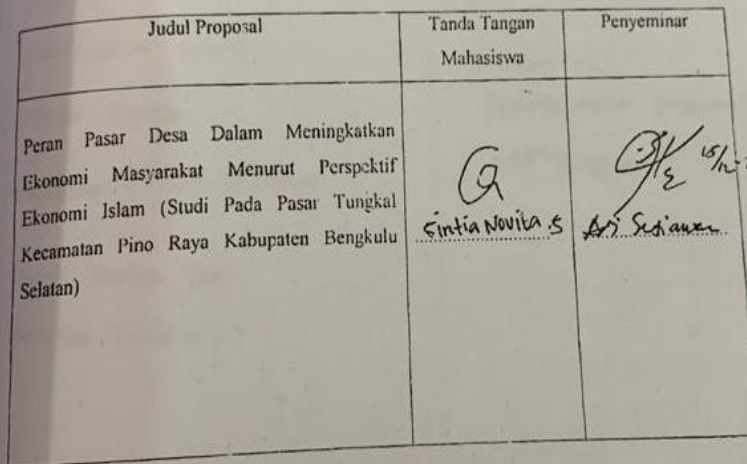 Judul Proposal
Tanda Tangan
Mahasiswa
Penyeminar
Peran Pasar Desa Dalam Meningkatkan
Ekonomi Masyarakat Menurut Perspektif
Ekonomi Islam (Studi Pada Pasar Tungkal
Kecamatan Pino Raya Kabupaten Bengkulu
Selatan)
Cintia Novita.S
Ari Setiawan